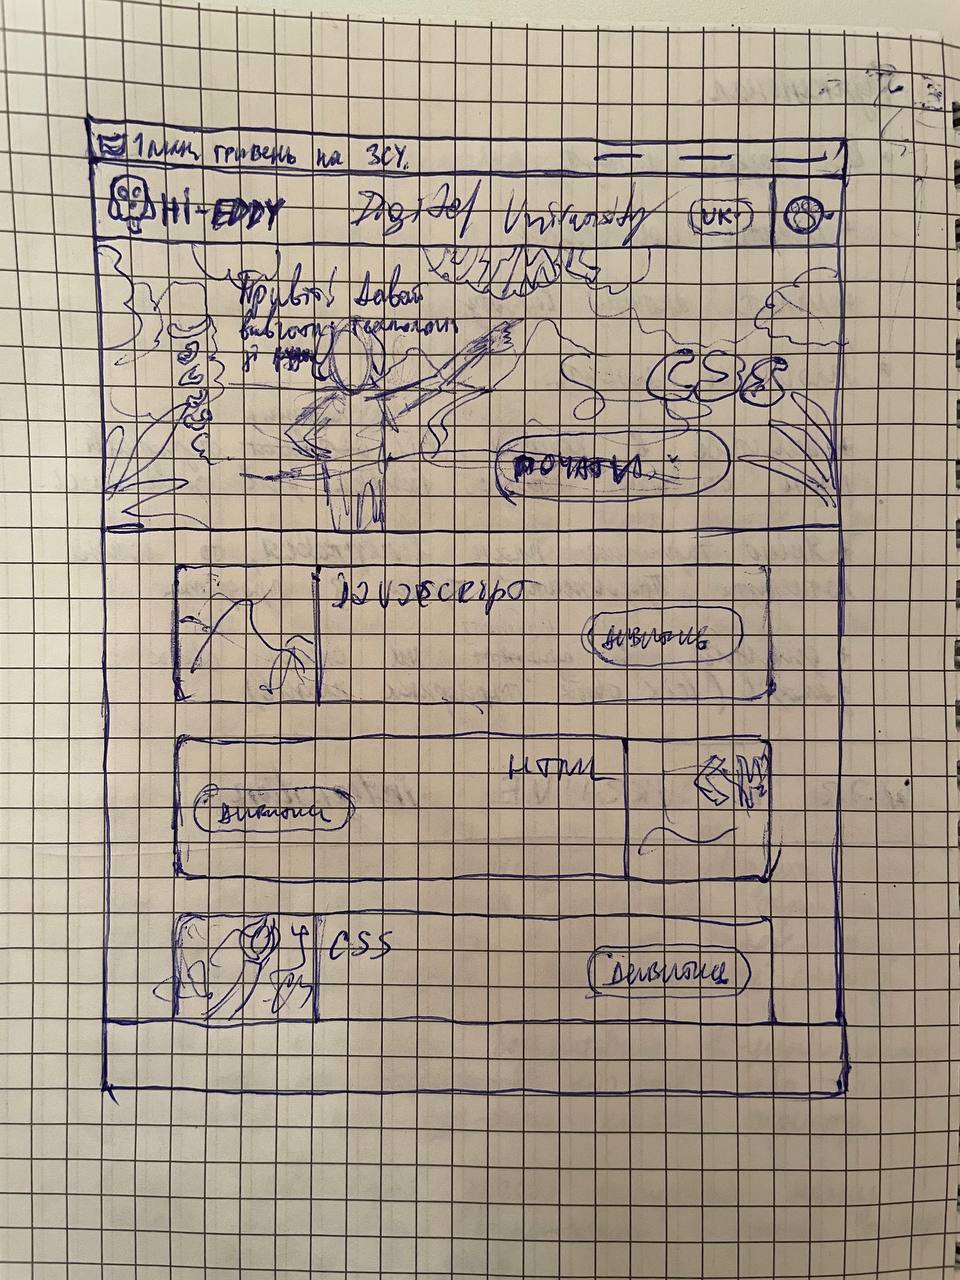 1 млн. гривень на ЗСУ.
Hi-EDDY Digital University UK
Привіт! Давай
вивчати технологі
ї
CSS
ПОЧАТИ
JavaScript
Дивитись
HTML
Дивитись
CSS
Дивитись